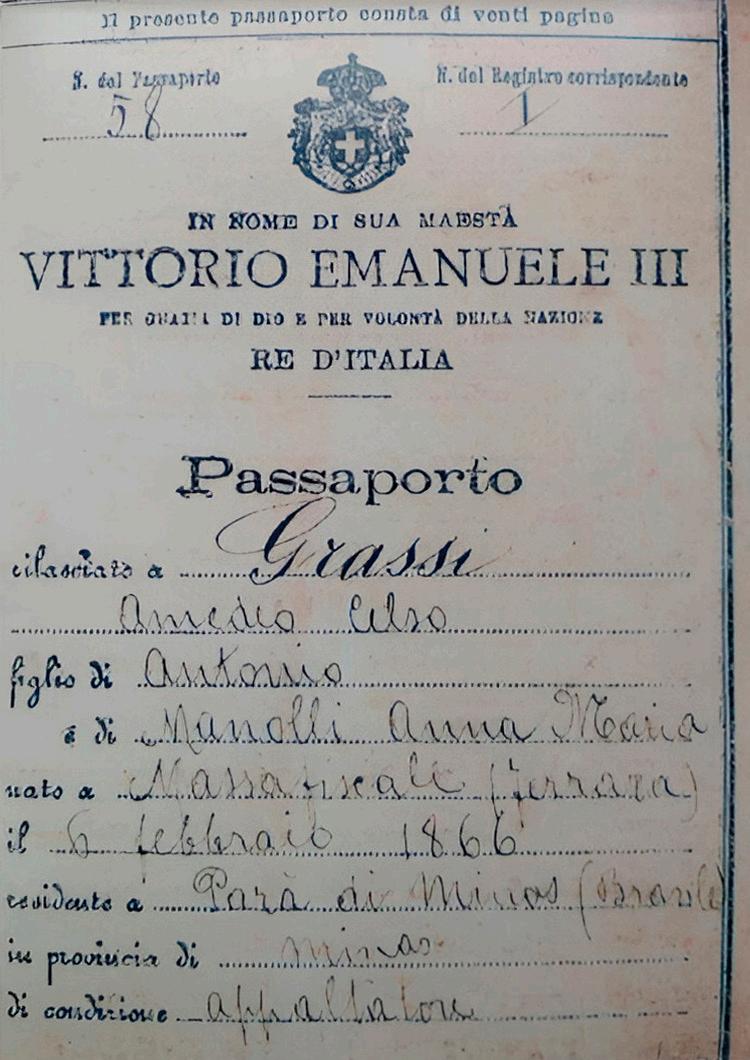 Il presente passaporto consta di venti pagine
N. del Passaporto N. del Registro corrispondente
58 1
IN NOME DI SUA MAESTÀ
VITTORIO EMANUELE III
PER GRAZIA DI DIO E PER VOLONTÀ DELLA NAZIONE
RE D'ITALIA
Passaporto
rilasciato a Grassi
Amedeo Celso
figlio di Antonio
e di Manolli Anna Maria
nato a Massafiscale (Ferrara)
il 6 febbraio 1866
residente a Parà di Minas (Brasile)
in provincia di Minas
di condizione appaltatore